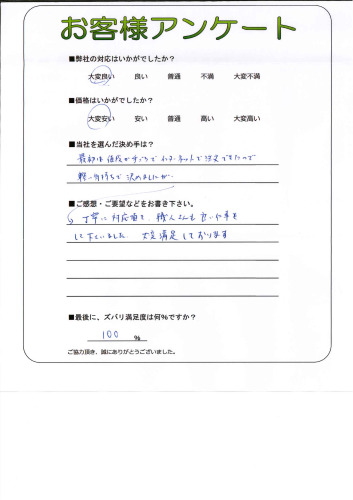 お客様アンケート
■弊社の対応はいかがでしたか?
大変良い 良い 普通 不満 大変不満
■価格はいかがでしたか?
大変安い 安い 普通 高い 大変高い
■当社を選んだ決め手は?
最初は値段が
インターネットで注文できたので
軽い気持ちで決めましたが、
■ご感想・ご要望などをお書き下さい。
丁寧に対応頂き、職人さんも良い仕事を
して下さいました 大変満足しております
■最後に、ズバリ満足度は何%ですか?
100 %
ご協力頂き、誠にありがとうございました。